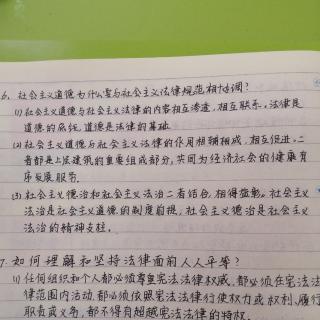 6、社会主义道德为什么要与社会主义法律规范相协调?
(1)社会主义道德与社会主义法律的内容相互渗透,相互联系。法律是
道德的底线,道德是法律的基础.
(2)社会主义道德与社会主义法律的作用相辅相成,相互促进,二
者都是上层建筑的重要组成部分,共同为经济社会的健康有
序发展服务.
(3)社会主义德治和社会主义法治二者结合,相得益彰.社会主义
法治是社会主义道德的制度前提,社会主义德治是社会主义
法治的精神支柱.
7.如何理解和坚持法律面前人人平等?
(1)任何组织和个人都必须尊重宪法法律权威,都必须在宪法法
律范围内活动,都必须依照宪法法律行使权力或权利、履行
职责或义务,都不得有超越宪法法律的特权.